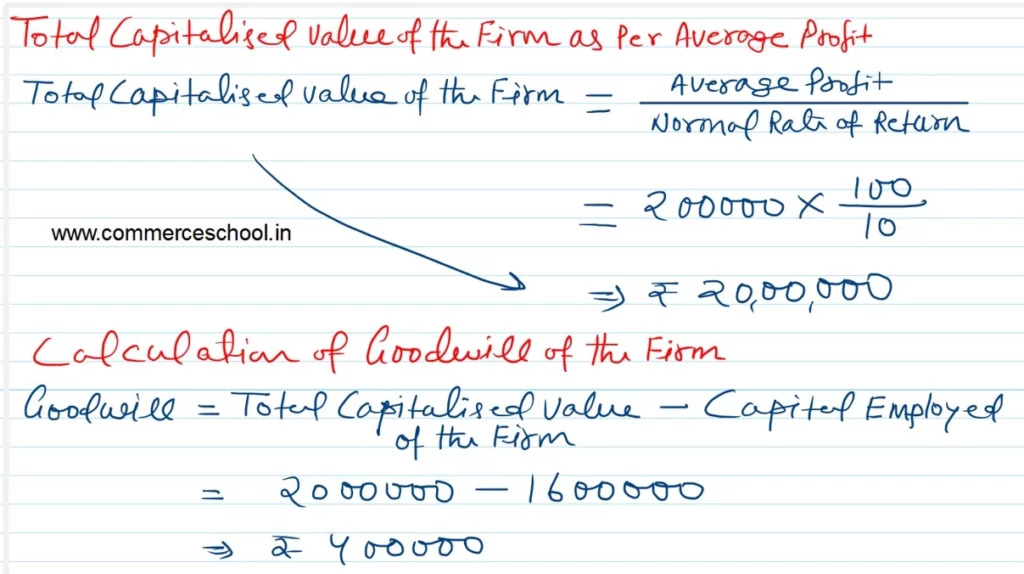 Total Capitalised Value of the Firm as Per Average Profit
Total Capitalised value of the Firm = Average Profit / Normal Rate of Return
= 200000 × 100/10
www.commerceschool.in
⇒ ₹ 20,00,000
Calculation of Goodwill of the Firm
Goodwill = Total Capitalised value of the Firm − Capital Employed
= 2000000 − 1600000
⇒ ₹ 400000